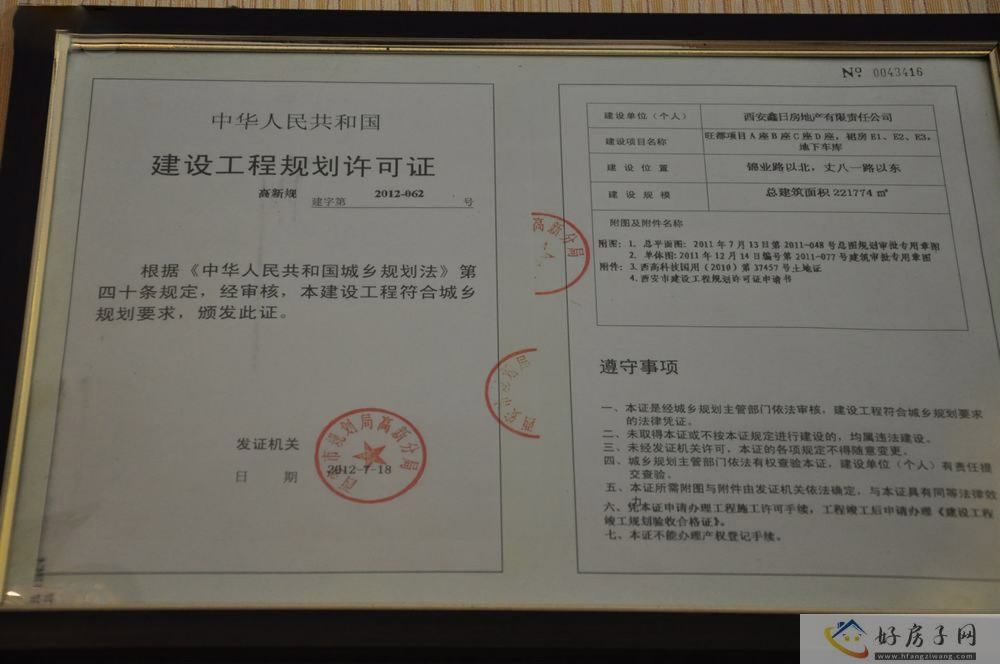 中华人民共和国
建设工程规划许可证
高新规
建字第 2012-062 号
根据《中华人民共和国城乡规划法》第
四十条规定，经审核，本建设工程符合城乡
规划要求，颁发此证。
发证机关
日 期
2012-7-18
西安市规划局高新分局
高新分局
№ 0043416
建设单位（个人） 西安鑫日房地产有限责任公司
建设项目名称 旺都项目A座B座C座D座，裙房E1、E2、E3，
地下车库
建设位置 锦业路以北，丈八一路以东
建设规模 总建筑面积221774㎡
附图及附件名称
附图：1. 总平面图：2011年7月13日第2011-048号总图规划审批专用章图
2. 单体图：2011年12月14日编号第2011-077号建筑审批专用章图
附件：3. 西高科技国用（2010）第37457号土地证
4. 西安市建设工程规划许可证申请书
遵守事项
一、本证是经城乡规划主管部门依法审核，建设工程符合城乡规划要求
的法律凭证。
二、未取得本证或不按本证规定进行建设的，均属违法建设。
三、未经发证机关许可，本证的各项规定不得随意变更。
四、城乡规划主管部门依法有权查验本证，建设单位（个人）有责任提
交查验。
五、本证所需附图与附件由发证机关依法确定，与本证具有同等法律效
力。
六、凭本证申请办理工程施工许可手续，工程竣工后申请办理《建设工程
竣工规划验收合格证》。
七、本证不能办理产权登记手续。
好房子网
www.hfangziwang.com